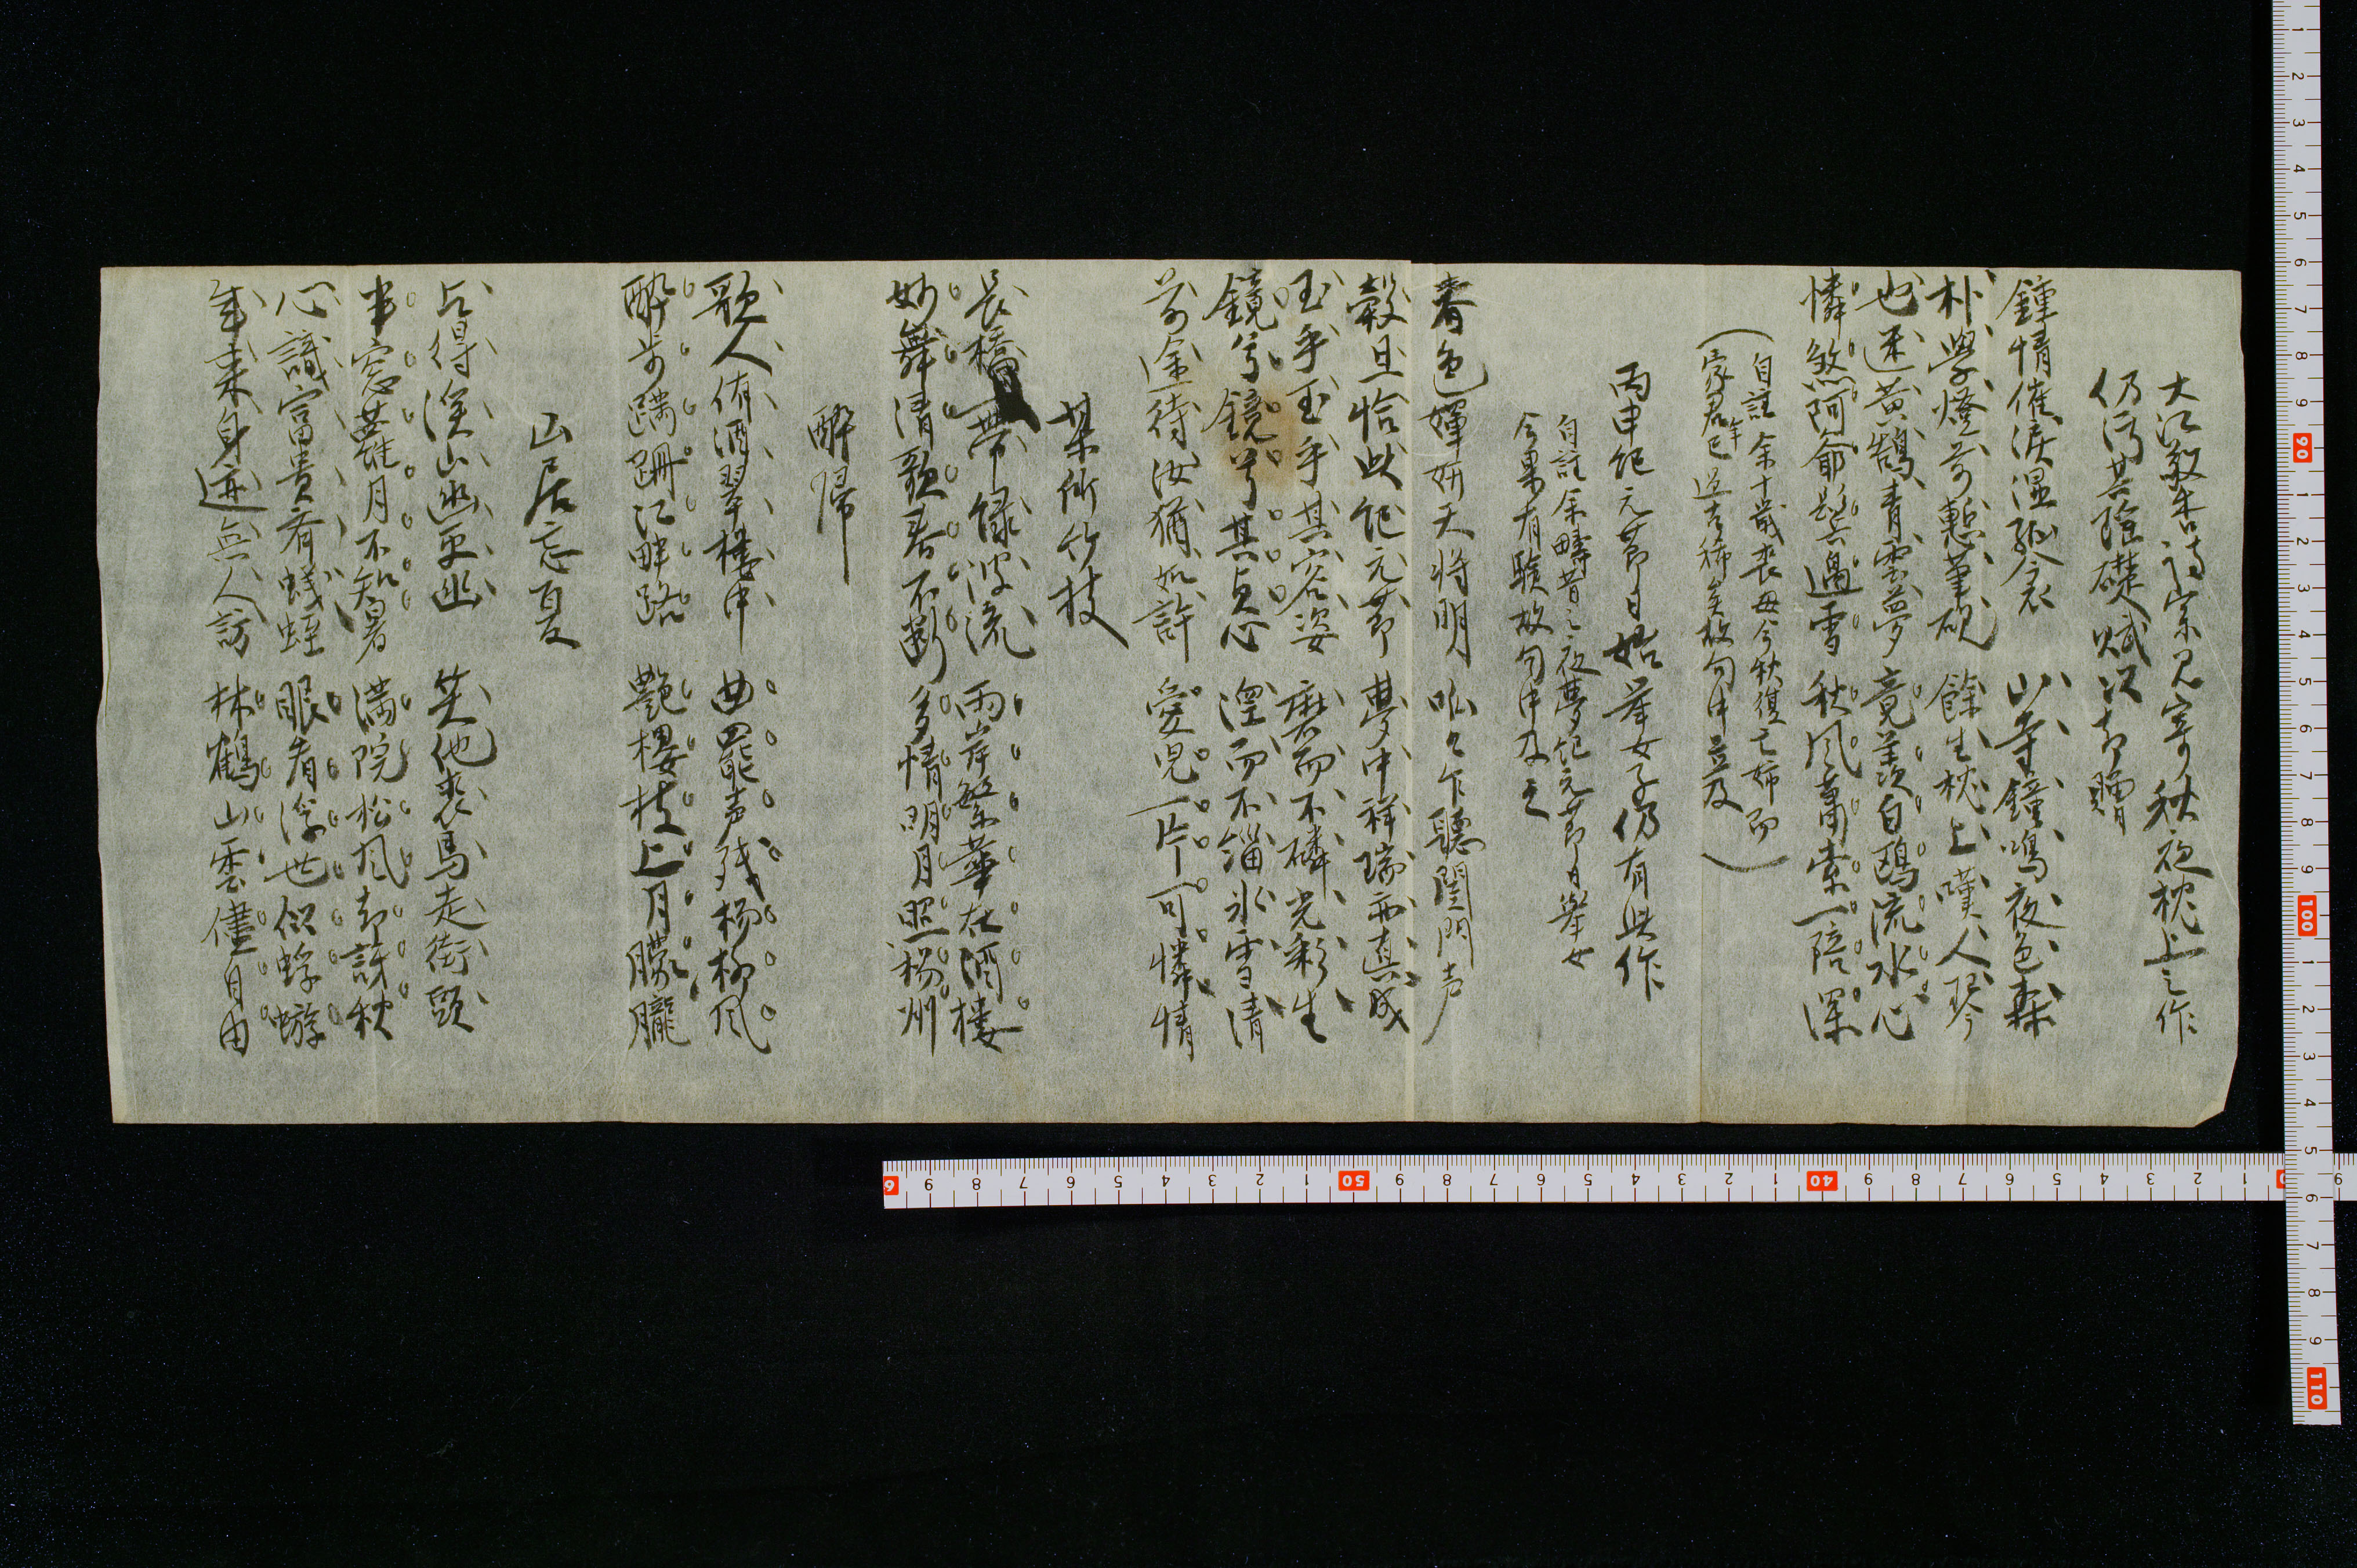 大江敬香詞宗見寄秋夜枕上之作
仍汚其隆礎賦次却贈
鍾情催涙湿孤衾 山寺鐘鳴夜色森
朴学燈前慙筆硯 餘生枕上嘆人琴
也迷黄鵠青雲夢 竟羨白鴎流水心
憐煞阿爺髩過雪 秋風蕭索一陪深
(自註 余十歳喪母今秋復亡姉而
家君年已近古稀矣故句中言及)
丙申紀元節日始挙女子仍有此作
自註余疇昔之夜夢紀元節日挙女
今果有験故句中及之
春色輝妍天将明 呱々乍聴閨門声
穀旦恰此紀元節 夢中祥瑞亦真成
玉乎玉乎其容姿 磨而不磷光彩生
鏡兮鏡兮其貞心 涅而不緇氷雪清
前途待汝猶如許 愛児一片可憐情
某所竹枝
長橋一帯緑波流 両岸繁華在酒楼
妙舞清歌春不断 多情明月照楊州
酔帰
歌人侑酒翠楼中 曲罷声残楊柳風
酔歩蹣跚江畔路 艶桜枝上月朦朧
山居忘夏
占得深山幽更幽 笑他裘馬走街頭
半窓蘿月不知暑 満院松風却訝秋
心識富貴看蟻蛭 眼看浮世似蜉蝣
年来身迹無人訪 林鶴山雲僅自由